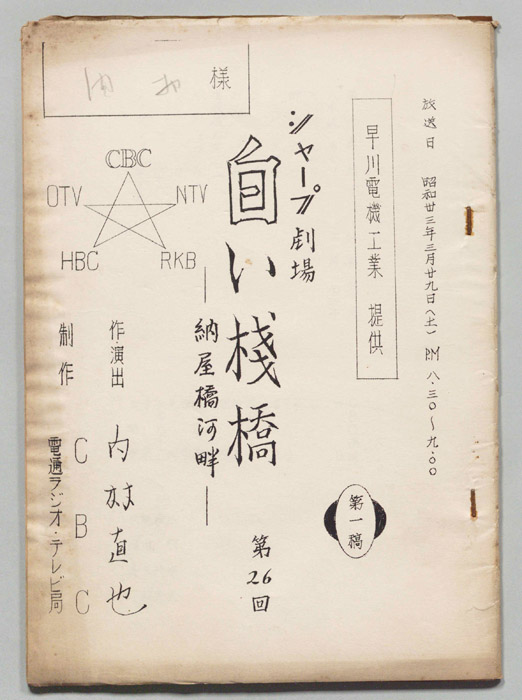 放送日 昭和廿三年三月廿九日(土) PM 八・三〇〜九・〇〇
早川電機工業 提供
第一稿
シャープ劇場
白い桟橋
第26回
―納屋橋河畔―
様
CBC
OTV
NTV
HBC
RKB
作・演出 内村直也
制作 CBC
電通ラジオ・テレビ局